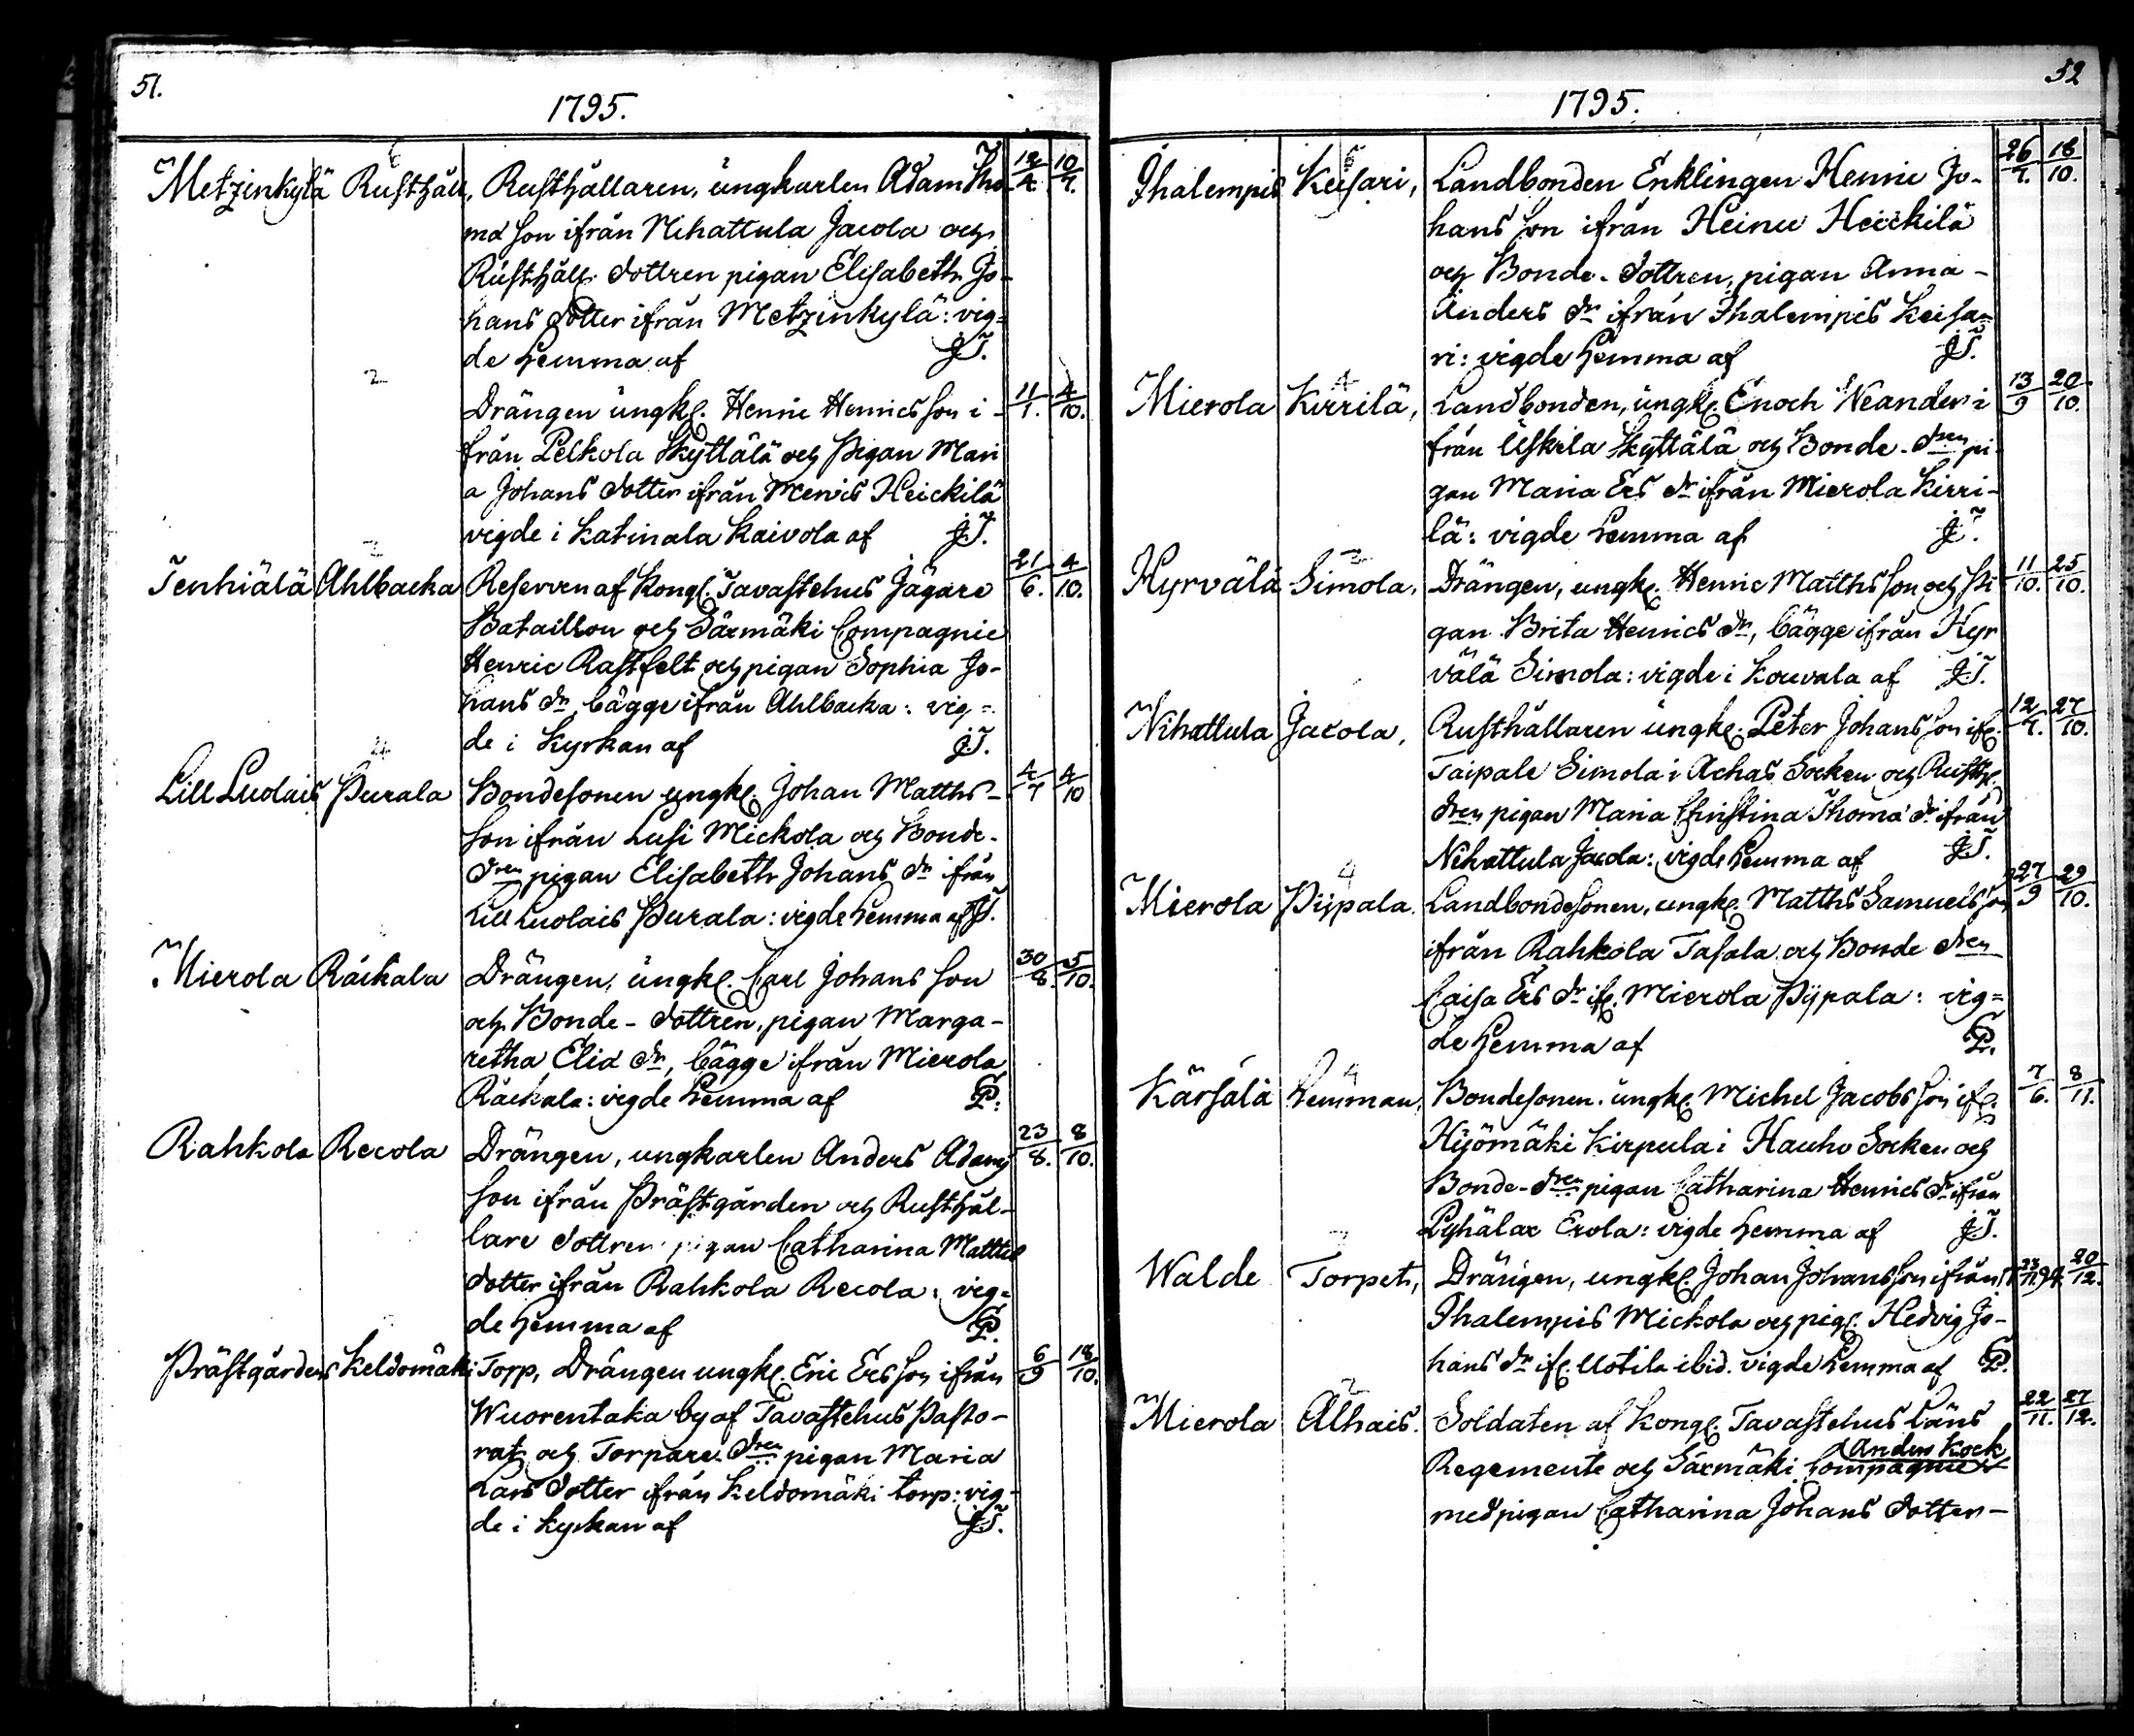 51.
1795.
Metzinkylä Rusthåll, Rusthållaren, ungkarlen Adam Tho- 12/4. 10/7.
mæ son ifrån Nihattula Jacola och
Rusthåll. dottren pigan Elisabeth Jo-
hans dotter ifrån Metzinkylä: vig=
de hemma af J.T.
2
Drängen ungkl. Henric Henrics son i- 11/1. 4/10.
från Pelkola Skyttälä och Pigan Mari
a Johans dotter ifrån Mervis Heickilä
vigde i Katinala Kaivola af J.T.
2
Tenhiälä Ahlbacka Reserven af Kongl. Tavastehus Jägare 21/6. 4/10.
Bataillon och Särmäki Compagnie
Henric Rastfelt och pigan Sophia Jo-
hans dr, bägge ifrån Ahlbacka: vig=
de i Kyrkan af J.T.
Lill Luolais Purala Bondesonen ungkl. Johan Matths- 4/7 4/10
son ifrån Lusi Mickola och Bonde-
dren pigan Elisabeth Johans dr ifrån
Lill Luolais Purala: vigde hemma af J.T.
Mierola Räikälä Drängen, ungkl. Carl Johans son 30/8. 5/10.
och Bonde-dottren, pigan Marga-
retha Eliæ dr, bägge ifrån Mierola
Räckala: vigde hemma af GP.
Rahkola Recola Drängen, ungkarlen Anders Adams 23/8. 8/10.
son ifrån Prästgården och Rusthål-
lare dottren pigan Catharina Matths
dotter ifrån Rahkola Recola: vig=
de hemma af GP.
Prästgårdens Keldomäki Torp, Drängen ungkl. Eric Ers son ifrån 6/9 18/10.
Wuorentaka by af Tavastehus Pasto-
rat, och Torpare dren pigan Maria
Lars dotter ifrån Keldomäki torp: vig-
de i kyrkan af J.T.
52
1795.
Ihalempis Keisari, Landbonden Enklingen Henric Jo- 26/7. 18/10.
hans son ifrån Heinu Heickilä
och Bonde-dottren, pigan Anna-
Anders dr ifrån Ihalempis Keisa=
ri: vigde hemma af J.T.
Mierola Kirrilä, Landbonden, ungkl. Enoch Neander i 13/9 20/10.
från Uskila Skyttälä och Bonde-dren pi
gan Maria Ers dr ifrån Mierola Kirri-
lä: vigde hemma af J.T.
2
Hyrvälä Simola, Drängen, ungkl. Henric Matths son och Pi 11/10. 25/10.
gan Brita Henrics dr, bägge ifrån Hyr
välä Simola: vigde i Kouvala af J.T.
Nihattula Jacola, Rusthållaren ungkl. Peter Johans son ifr. 12/7. 27/10.
Taipale Simola i Achas Socken och Rusth.
dren pigan Maria Christina Thomæ dr ifrån
Nihattula Jacola: vigde hemma af J.T.
4
Mierola Pijpala. Landbondesonen, ungkl. Matths Samuels son 27/9 29/10.
ifrån Rahkola Tasala och Bonde dren
Caisa Ers dr ifr. Mierola Pijpala: vig=
de hemma af GP.
4
Kärsälä Hemman, Bondesonen ungkl. Michel Jacobs son ifr. 7/6. 8/11.
Hijömäki Kirpula i Hauho Socken och
Bonde-dren pigan Catharina Henrics dr ifrån
Lyhälax Erola: vigde hemma af J.T.
Walde Torpet, Drängen, ungkl. Johan Johans son ifrån 23/11.94. 20/12.
Ihalempis Mickola och pig. Hedvig Jo-
hans dr ifr. Uotila ibid. vigde hemma af GP.
2
Mierola Alhais. Soldaten af Kongl. Tavastehus Läns 22/11. 27/12.
Anders Kock
Regemente och Särmäki Compagnie
med pigan Catharina Johans dotter-